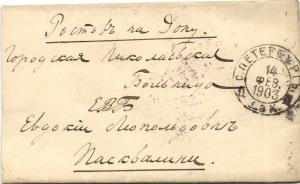 Ростовъ на Дону.
Городская Николаевская
Больница
ЕВБ
Евдокіи Леопольдовнѣ
Пасквалини.
С. ПЕТЕРБУРГЪ
14
ФЕВ.
1903